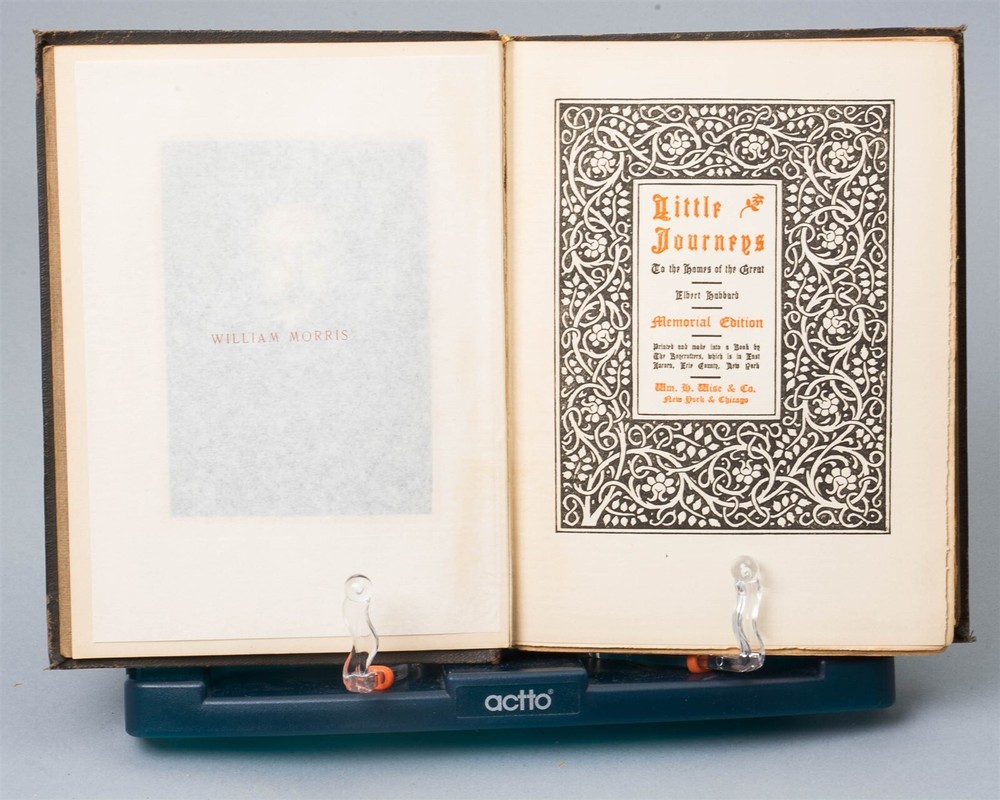 WILLIAM MORRIS
Little
Journeys
To the Homes of the Great
Elbert Hubbard
Memorial Edition
Printed and made into a Book by
The Roycrofters, which is in East
Aurora, Erie County, New York
Wm. H. Wise & Co.
New York & Chicago
actto®